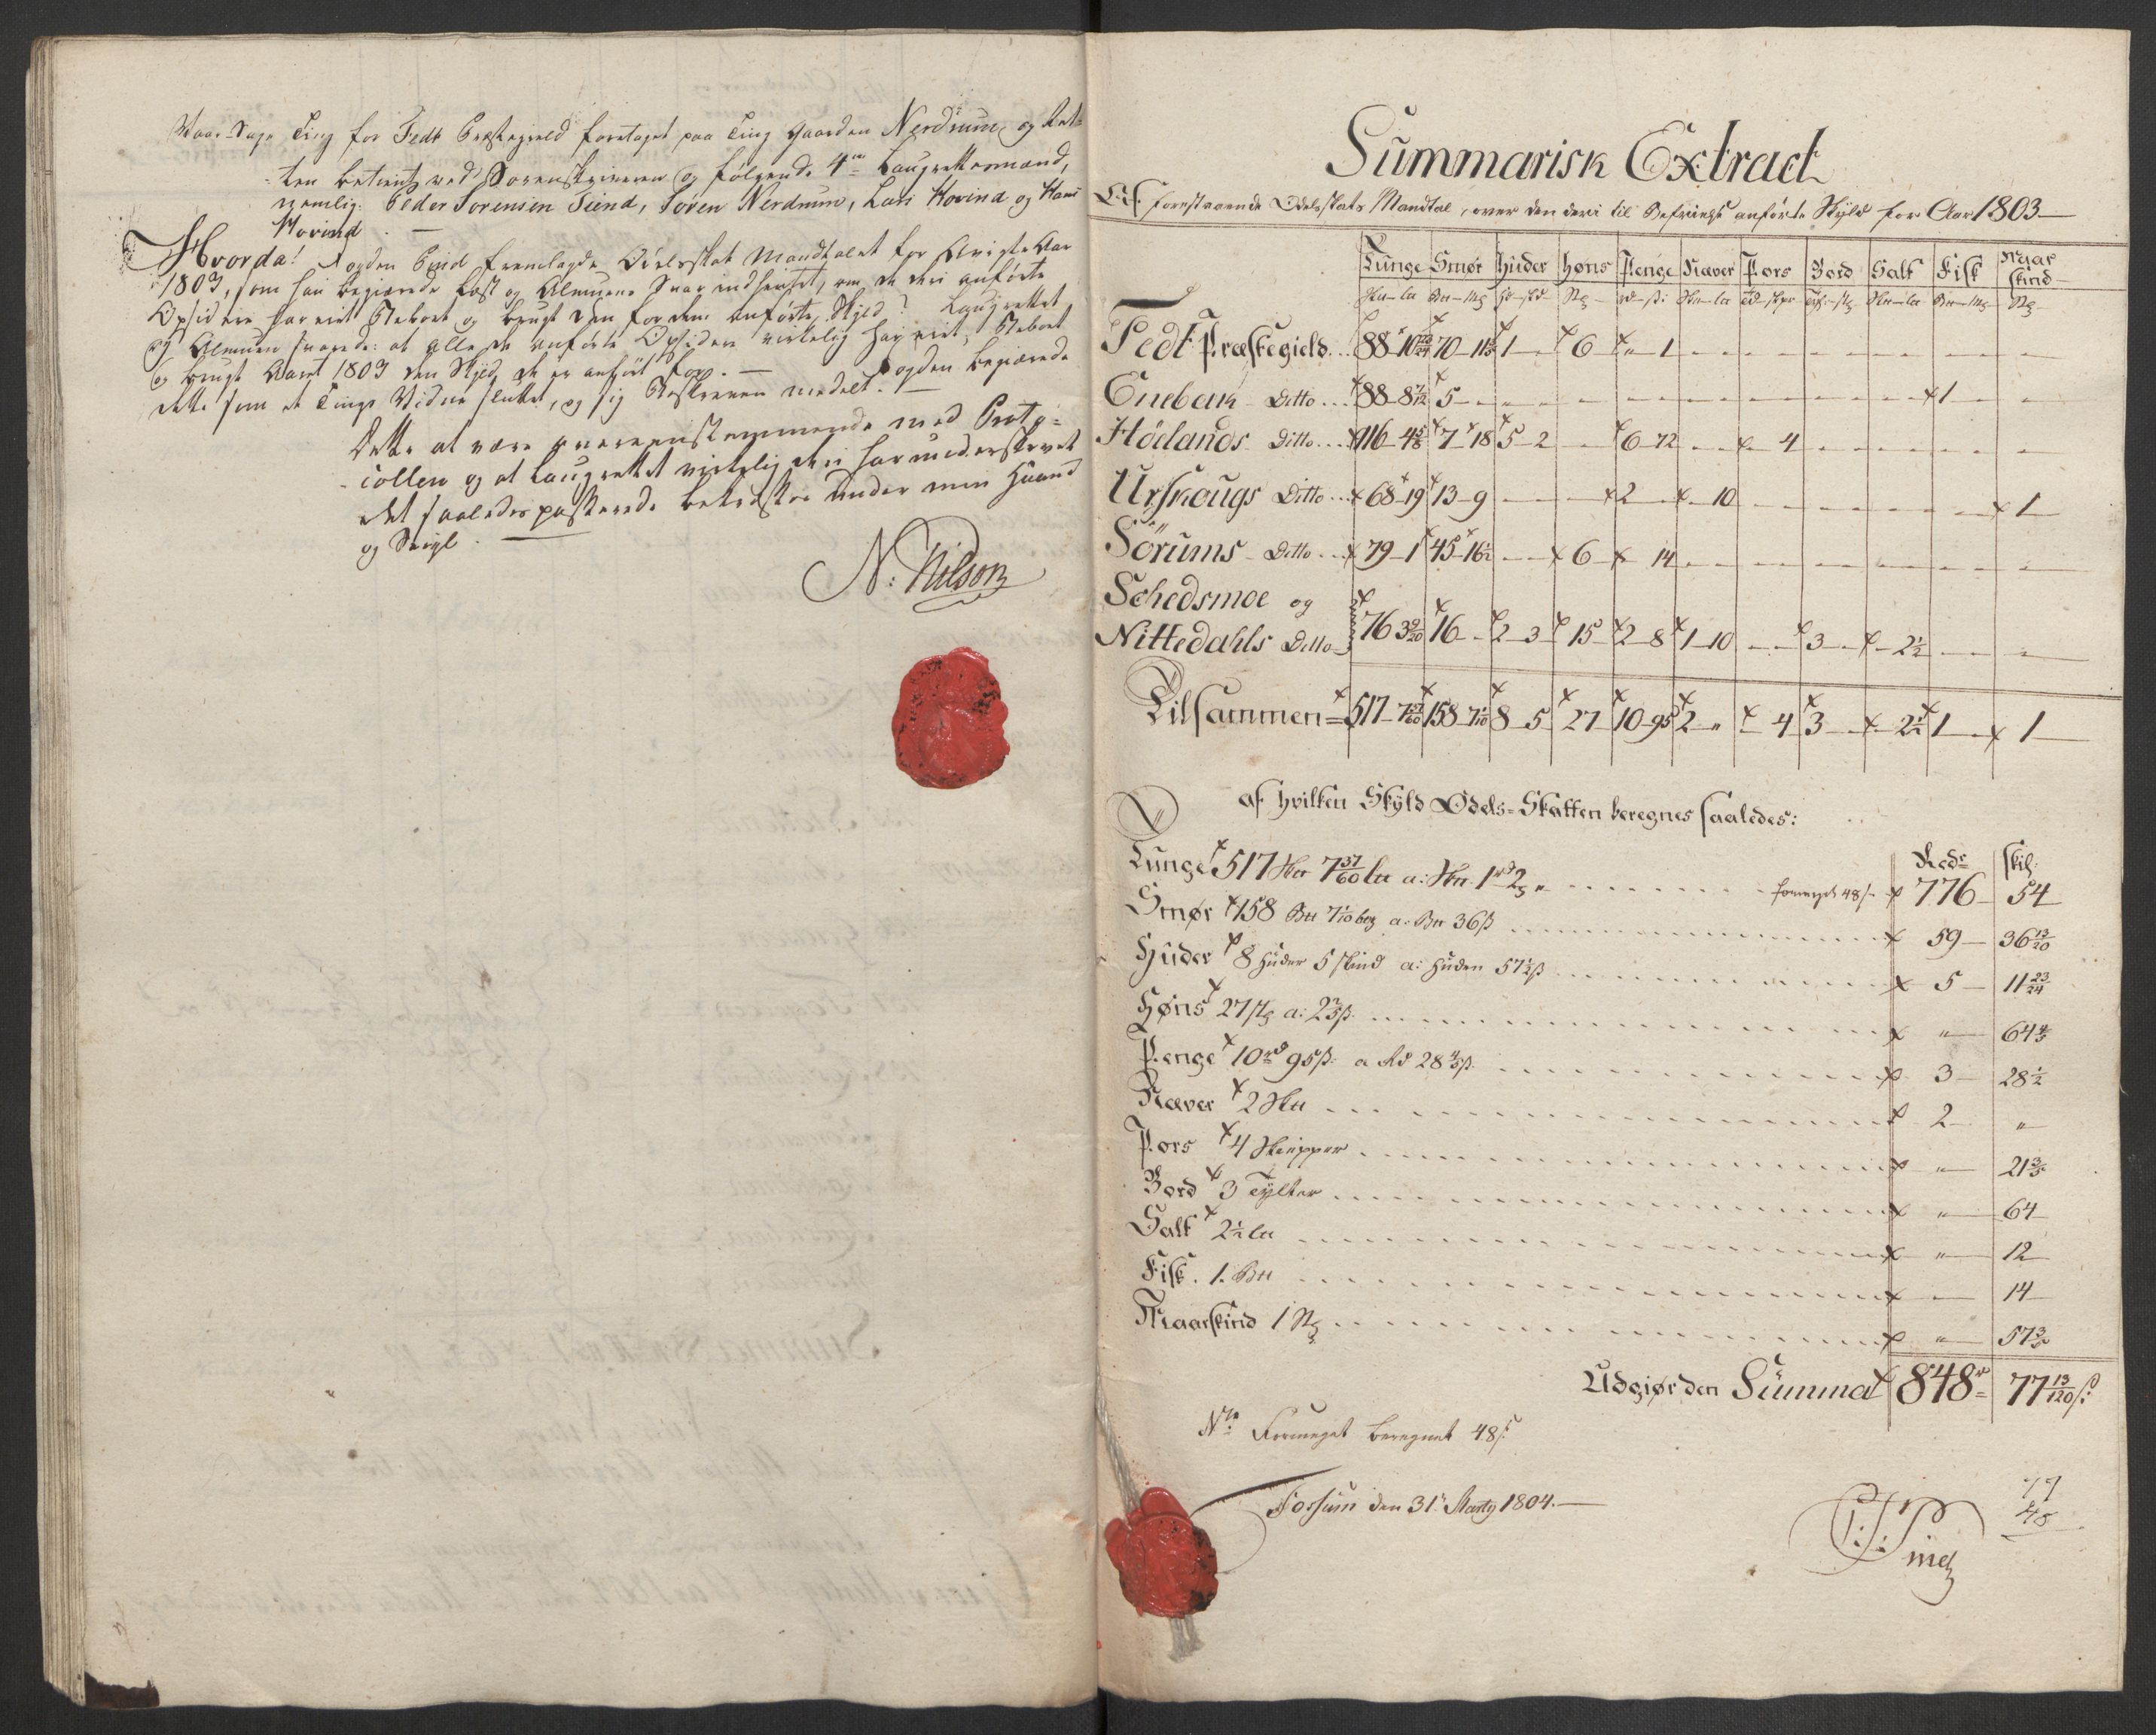 Aar Dage Ting for Fedt Præstegield foretaget paa Ting Gaarden Nerdrum, og Ret-
ten betient ved Sorenskriveren og følgende 4re Laugrettesmænd,
nemlig: Peder Sørensen Tiend, Søren Nerdrum, Lars Hovind og Hans
Hovind.
Hvorda! Fogden Bind fremlagde Odelsskat Mandtalet for Afvigte Aar
1803, som han begiærede læst og Almuens Svar indhentet, om de deri anførte
Opsiddere har eiet, Beboet og brugt den for dem anførte Skyld? Laugrettet
og Almuen svarede: at alle de anførte Opsiddere virkelig har eiet, beboet
og brugt Aaret 1803 den Skyld de er anført for. — Fogden begiærede
dette som et Tings Vidne sluttet, og sig Beskreven meddelt. —
Dette at være overeensstemmende med Proto-
collen og at Laugrettet virkelig deri har underskrevet
det saaledes passerede bekræfter under min Haand
og Seigl.
N: Nilson
Summarisk Extract
Af forestaaende Odelsskats Mandtal, over den deri til Befrielse anførte Skyld for Aar 1803 —
Tunge Smør Huder Høns Penge Næver Pors Bord Salt Fisk Maarskind
Fedt Præstegield... 88 - 10 70 - 11 1 - 6 " 1
Eneback Ditto... 88 - 8 7/12 5 - 1
Hölands Ditto... 116 - 4 5/8 7 - 18 5 - 2 6 - 72 4
Urskougs Ditto... 68 - 19 13 - 9 2 10 1
Sörums Ditto... 79 - 1 45 - 16 1/2 6 14
Schedsmoe og
Nittedahls Ditto 76 3 9/20 16 - 2 - 3 15 2 - 8 1 - 10 3 2 1/2
Tilsammen = 517 - 7 37/60 158 - 7 1/10 8 - 5 27 10 - 95 2 - " 4 3 2 1/2 1 1
Af hvilken Skyld Odels-Skatten beregnes saaledes:
Rdr skil:
Tunge 517 7 37/60 a: 1 formeget 48 s 776 - 54
Smør 158 7 1/10 a: 36 ß 59 - 36 13/20
Huder 8 Huder 5 skind a: Huden 57 1/2 ß 5 - 11 23/24
Høns 27 a: 2 2/5 ß " 64 4/5
Penge 10 rd 95 ß a Rd 28 4/5 ß 3 - 28 1/2
Næver 2 2 "
Pors 4 Skiepper " 21 3/5
Bord 3 Tylter " 64
Salt 2 1/2 " 12
Fisk. 1. — 14
Maarskind 1 " 57 3/5
Udgiør den Summa 848 77 13/120 ß:
Nb Formeget beregnet 48 ß
Fossum den 31 Marty 1804. —
77
48